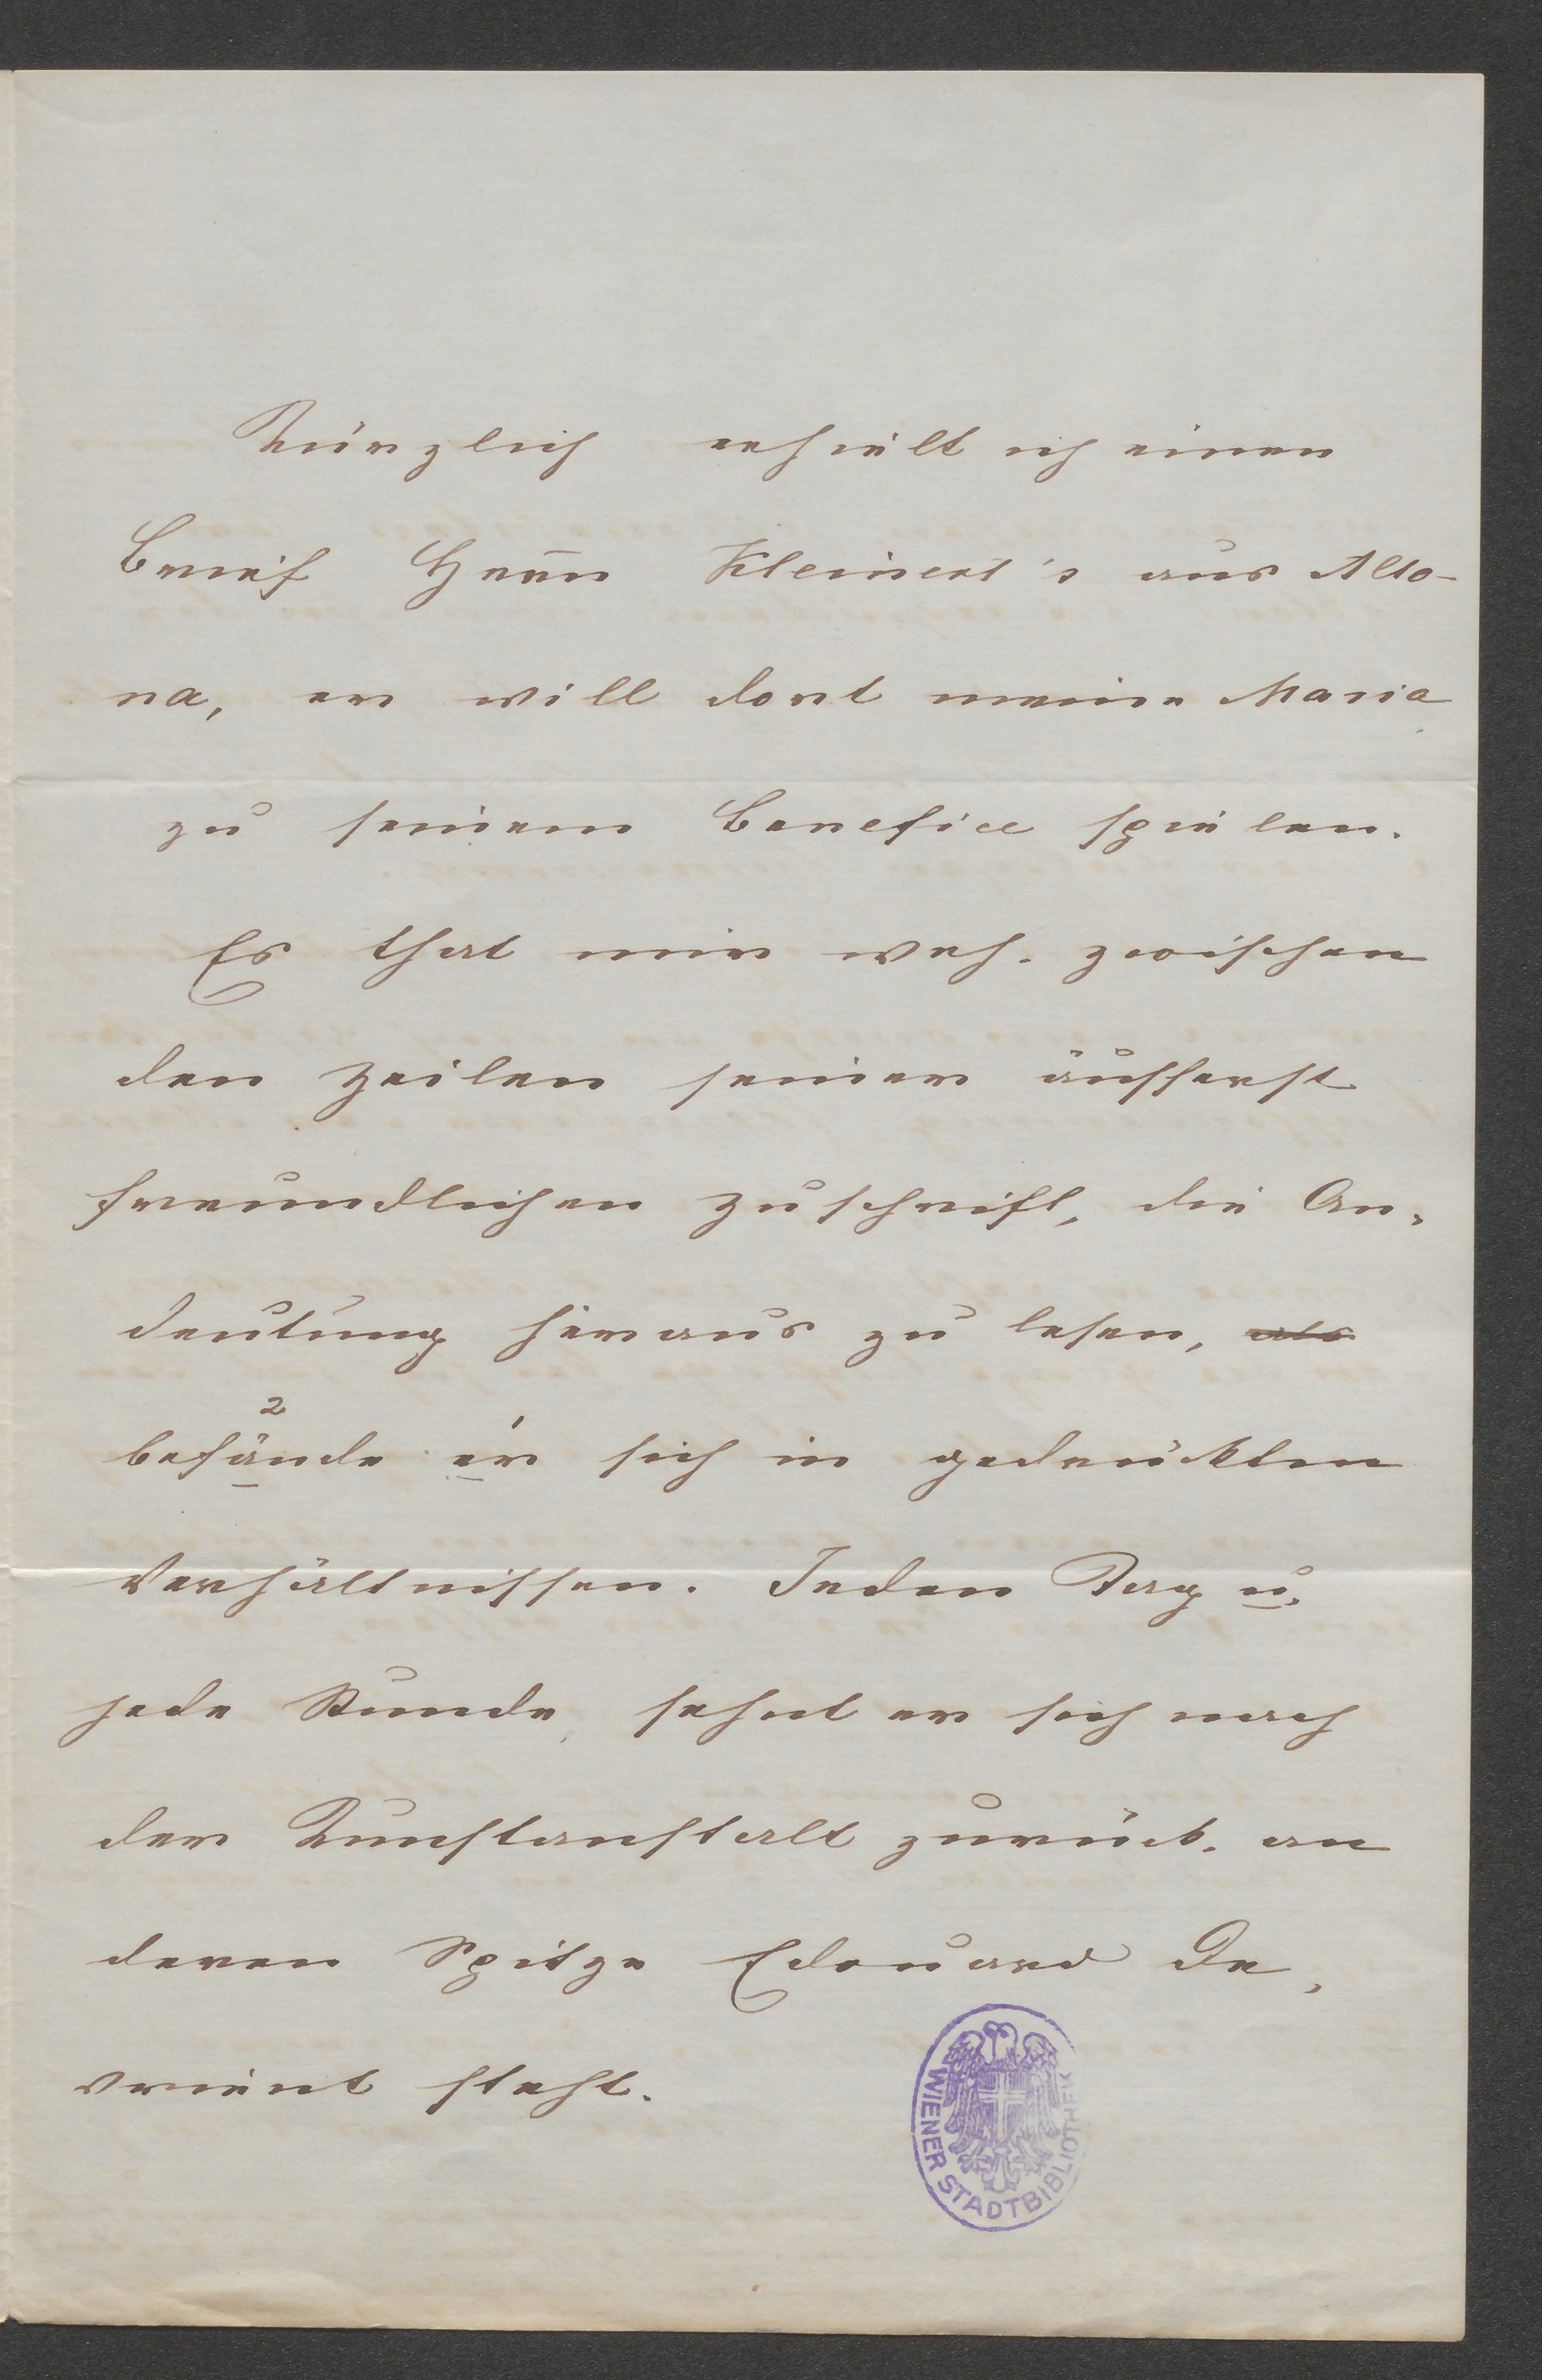 Kürzlich erhielt ich einen
Brief Herrn Kleinert's aus Alto-
na, er will dort meine Maria
zu seinem Benefice spielen.
Es that mir weh. zwischen
den Zeilen seiner äusserst
freundlichen Zuschrift, die An-
deutung heraus zu lesen, als
2 1
befände er sich in gedrückten
Verhältnissen. Jeden Tag u.
jede Stunde, sehnt er sich nach
der Kunstanstalt zurück. an
deren Spitze Edouard De-
vrient steht.
WIENER STADTBIBLIOTHEK